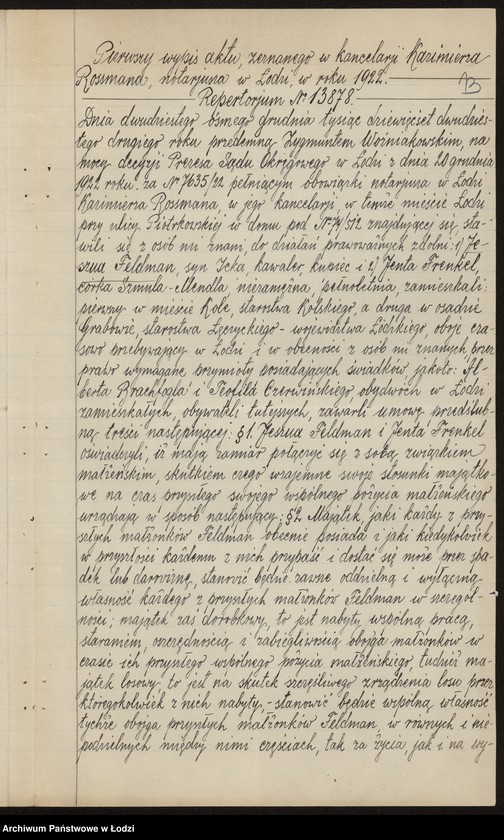 Pierwszy wypis aktu, zeznanego w kancelarji Kazimierza
Rossmana, notarjusza w Łodzi, w roku 1922.
13
Repertorjum № 13878.
Dnia dwudziestego ósmego grudnia tysiąc dziewięćset dwudzies-
tego drugiego roku przedemną Zygmuntem Woźniakowskim, na
mocy decyzji Prezesa Sądu Okręgowego w Łodzi z dnia 20 grudnia
1922 roku za № 7635/22 pełniącym obowiązki notarjusza w Łodzi
Kazimierza Rossmana, w jego kancelarji, w temże mieście Łodzi
przy ulicy Piotrkowskiej w domu pod № 74/512 znajdującej się, sta-
wili się z osób mi znani, do działań prawowarnych zdolni: 1) Je-
szua Feldman, syn Icka, kawaler, kupiec i 2) Jenta Frenkel,
córka Szmula-Mendla, niezamężna, pełnoletnia, zamieszkali:
pierwszy w mieście Kole, starostwa Kolskiego, a druga w osadzie
Grabowie, starostwa Łęczyckiego - województwa Łódzkiego, oboje cza-
sowo przebywający w Łodzi i w obecności z osób mi znanych, przez
prawo wymagane przymioty posiadających świadków, jakoto: Al-
berta Brachfogla i Teofila Czerwińskiego obydwóch w Łodzi
zamieszkałych, obywateli tutejszych, zawarli umowę przedślub-
ną treści następującej: § 1. Jeszua Feldman i Jenta Frenkel
oświadczyli, iż mają zamiar połączyć się z sobą związkiem
małżeńskim, skutkiem czego wzajemne swoje stosunki majątko-
we na czas przyszłego swojego wspólnego pożycia małżeńskiego
urządzają w sposób następujący: § 2. Majątek, jaki każdy z przy-
szłych małżonków Feldman obecnie posiada i jaki kiedykolwiek
w przyszłości każdemu z nich przypaść i dostać się może przez spa-
dek lub darowiznę, stanowić będzie zawsze oddzielną i wyłączną
własność każdego z przyszłych małżonków Feldman w szczegól-
ności; majątek zaś dorobkowy, to jest nabyty wspólną pracą,
staraniem, oszczędnością i zabiegliwością obojga małżonków w
czasie ich przyszłego wspólnego pożycia małżeńskiego, tudzież ma-
jątek losowy - to jest na skutek szczęśliwego zrządzenia losu przez
któregokolwiek z nich nabyty, - stanowić będzie wspólną własność
tychże obojga przyszłych małżonków Feldman, w równych i nie-
podzielnych między nimi częściach, tak za życia, jak i na wy-
Archiwum Państwowe w Łodzi